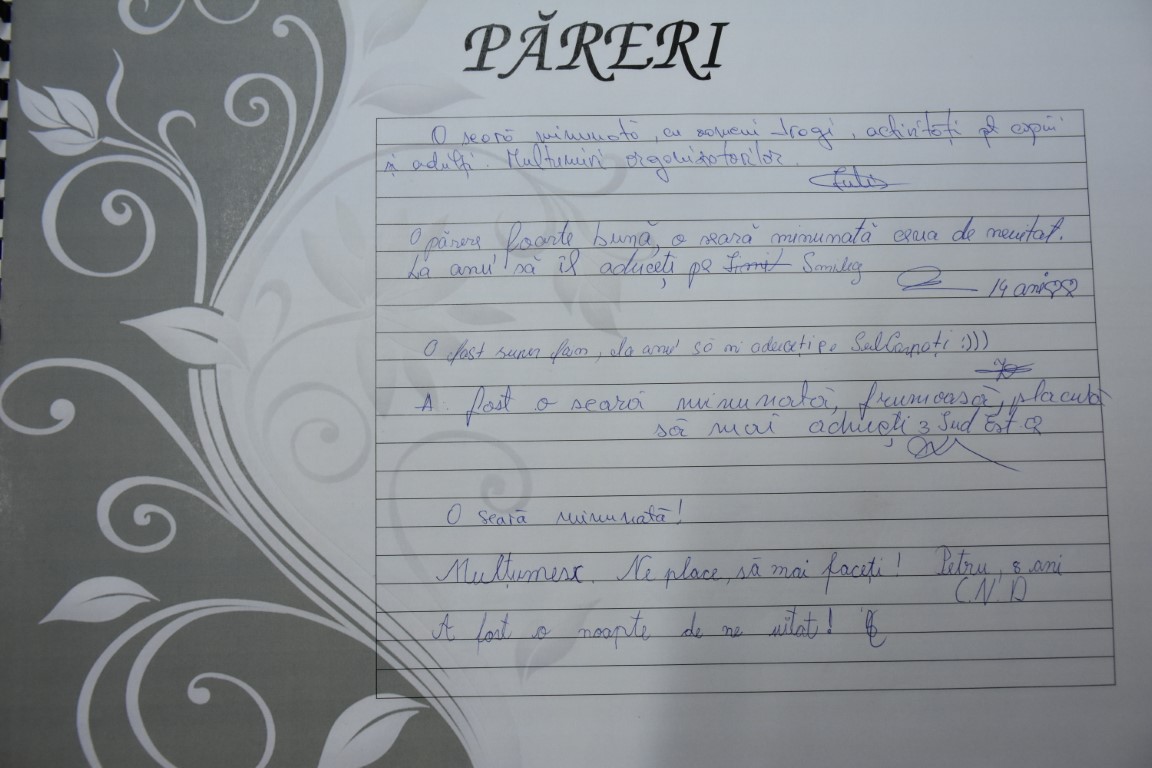 PĂRERI
O seară minunată, cu oameni dragi, activități pt copii
și adulți. Mulțumiri organizatorilor.
O părere foarte bună, o seară minunată ceva de neuitat.
La anu' să îl aduceți pe Smiley
14 ani
O fost super fain, la anu' să ni aduceți pe SubCarpați :)))
A fost o seară minunată, frumoasă, placută
să mai aduceți 3 Sud Est
O seară minunată!
Mulțumesc. Ne place, să mai faceți! Petru, 8 ani
C.N.D
A fost o noapte de ne uitat!